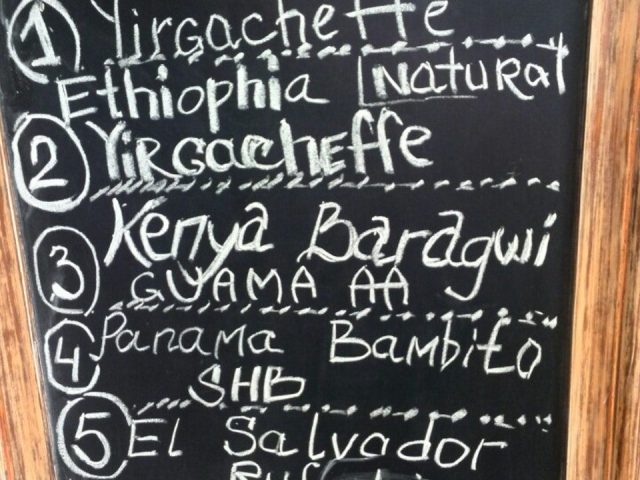 1 Yirgacheffe
Ethiophia Natural
2 Yirgacheffe
3 Kenya Baragwi
GUAMA AA
4 Panama Bambito
SHB
5 El Salvador